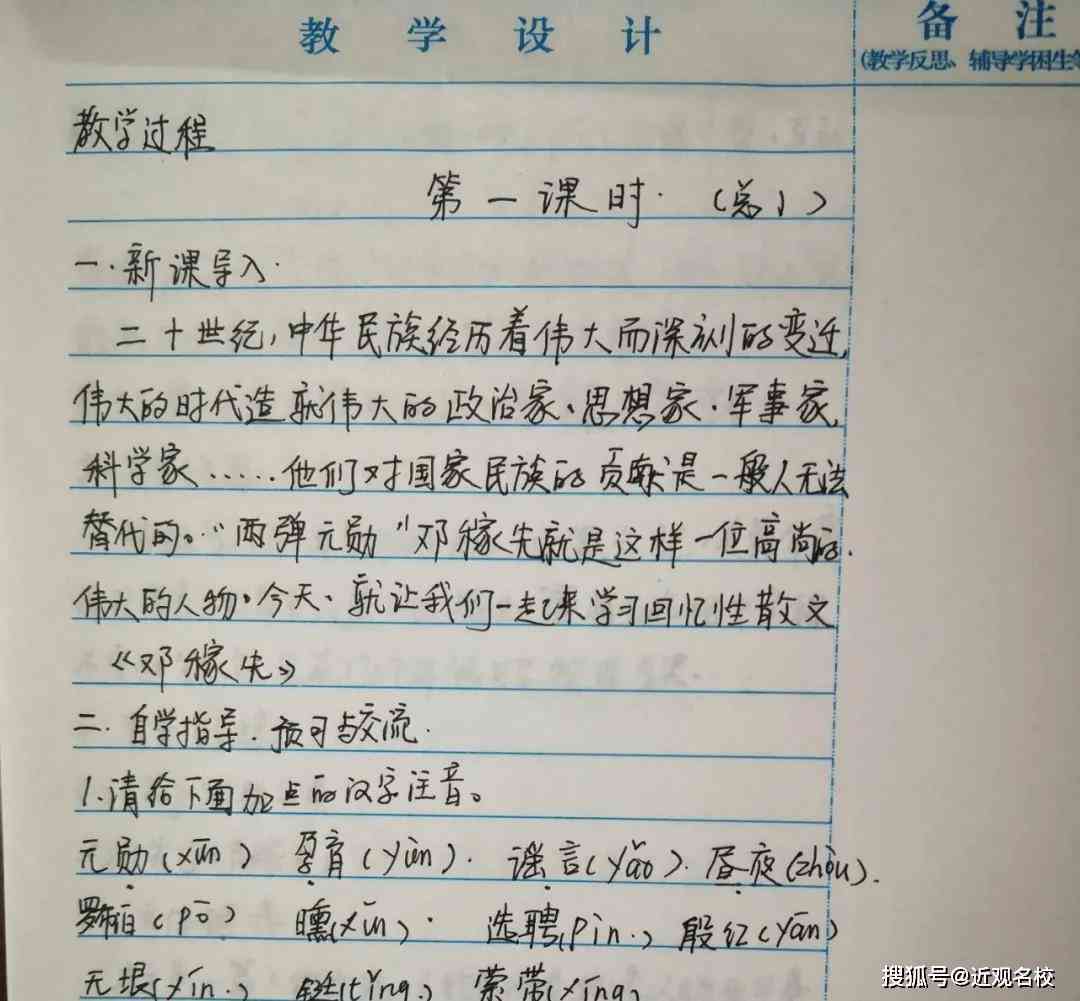 教学设计
备注
(教学反思、辅导学困生
教学过程
第一课时.(总1)
一.新课导入.
二十世纪,中华民族经历着伟大而深刻的变迁,
伟大的时代造就伟大的政治家、思想家.军事家,
科学家……他们对国家民族的贡献是一般人无法
替代的。"两弹元勋"邓稼先就是这样一位高尚的.
伟大的人物。今天、就让我们一起来学习回忆性散文
《邓稼先》
二.自学指导.预习与交流.
1.请给下面加点的汉字注音。
元勋(xūn) 孕育(yùn). 谣言(yáo). 昼夜(zhòu).
罗布泊(pō) 曛(xūn). 选聘(pìn.) 殷红(yān)
无垠(yín.) (tǐng.) 萦带(yíng)
搜狐号@近观名校